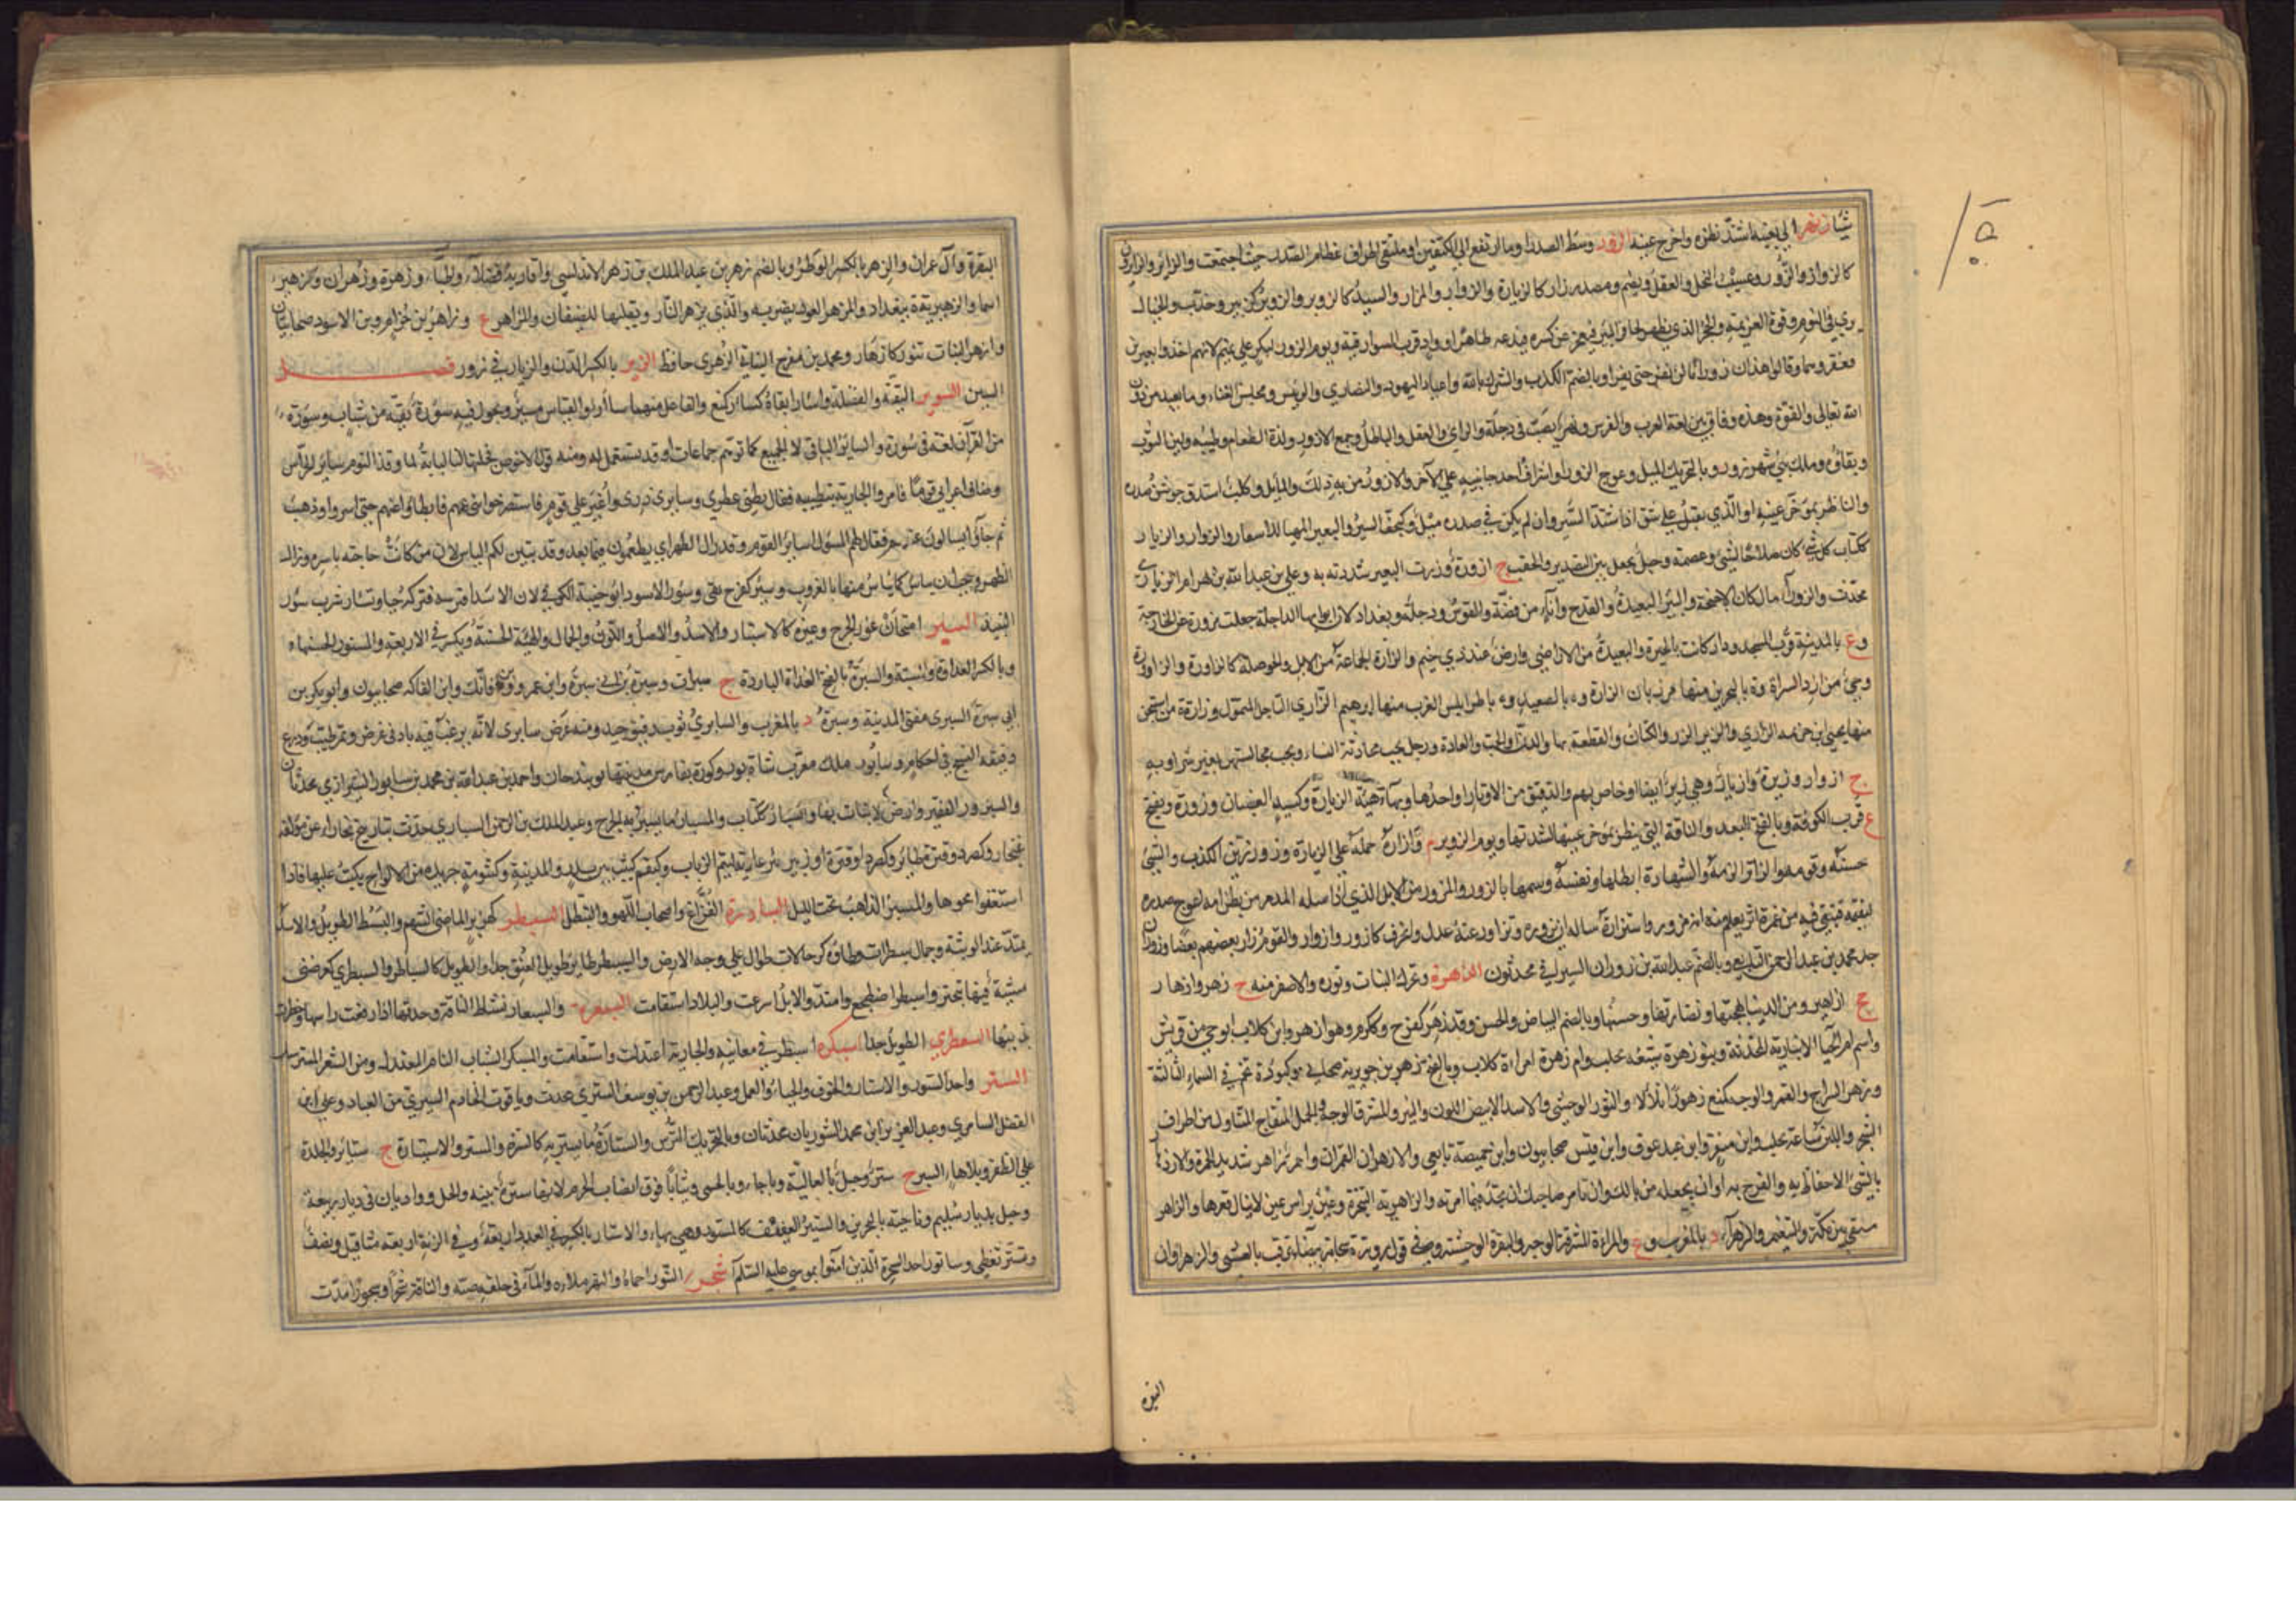 شيئا زنهر الي بعينه اشتد نظره واخرج عينه الزور وسط الصدر او ما ارتفع الي الكتفين او ملتقي اطراف عظام الصدر حيث اجتمعت والزائر والزائرون
كالزوار والزُّوَّر وعسيب النخل والعقل ويضم ومصدر زار كالزيارة والزوار والمزار والسيد كالزوير والزوير كزبير وخدب والخيال
يري في النوم وقوة العزيمة والحجر الذي يظهر لحافر البير فيعجز عن كسره فيدعه ظاهرا وواد قرب السوارقية ويوم الزور لبكر علي تميم لانهم اخذوا بعيرين
فعقروهما وقالوا هذان زورانا لن نفر حتى يفرا وبالضم الكذب والشرك بالله واعياد اليهود والنصاري والرئيس ومجلس الغناء وما يعبد من دون
الله تعالى والقوة وهذه وفاق بين لغة العرب والفرس ونهر يصب في دجلة والراي والعقل والباطل وجمع الازور ولذة الطعام وطيبه ولين الثوب
ونقاؤه وملك بني شهرزور وبالتحريك الميل وعوج الزور او اشراف احد جانبيه علي الآخر والازور من به ذلك والمايل وكلب استدق جوشن صدره
والناظر بمؤخر عينه او الذي يقبل علي شق اذا اشتد السير وان لم يكن في صدره ميل وكهجف السير والبعير المهيا للاسفار والزوار والزيار
ككتاب كل شئ كان صلاحا لشئ وعصمة وحبل يجعل بين التصدير والحقب ج ازورة وزرت البعير شددته به وعلي بن عبد الله بن بهرام الزياري
محدث والزوراء مال كان لاحيحة والبير البعيدة والقدح واناء من فضة والقوس ودجلة وبغداد لان ابوابها الداخلة جعلت مزورة عن الخارجة
وع بالمدينة قرب المسجد ودار كانت بالحيرة والبعيدة من الاراضي وارض عند ذي خيم والزارة الجماعة من الابل والحوصلة كالزاورة والزاوورة
وحي من ازد السراة وة بالبحرين منها مرزبان الزارة وة بالصعيد وة باطرابلس الغرب منها ابرهيم الزاري التاجر المتمول وزارة ة من اشيخن
منها يحيى بن خزيمة الزاري والزير الزر والكتان والقطعة بهاء والدن والحب والعادة ورجل يحب محادثة النساء ويحب مجالستهن بغير شر او به
ج ازوار وزيرة وازيار وهي زير ايضا او خاص بهم والدقيق من الاوتار او احدها وبهاء هيئة الزيارة وكسيد الغضبان وزورة ويفتح
ع قرب الكوفة وبالفتح البعد والناقة التي ينظر بمؤخر عينها لشدتها ويوم الزوير م وازاره حمله علي الزيارة وزور تزين الكذب والشئ
حسنه وقومه والزائر الزمه والشهادة ابطلها ونفسه وسمها بالزور والمزور من الابل الذي اذا سله المدمر من بطن امه اعوج صدره
فيغمزه فيبقي فيه من غمزه اثر يعلم منه انه مزور واستزاره ساله ان يزوره وتزاور عنه عدل وانحرف كازور وازوار والقوم زار بعضهم بعضا وزوران
جد محمد بن عبد الرحمن التابعي وبالضم عبد الله بن زوران السيرافي محدثون الزهرة ويحرك النبات ونوره والاصفر منه ج زهر وازهار
جج ازاهير ومن الدنيا بهجتها ونضارتها وحسنها وبالضم البياض والحسن وقد زهر كفرح وكرم وهو ازهر وابن كلاب ابو حي من قريش
واسم ام الحيا الانبارية المحدثة وبنو زهرة شيعة بحلب وام زهرة امراءة كلاب وبالفتح زهر بن جويرية صحابي وكتؤدة نجم في السماء الثالثة
وزهر السراج والقمر والوجه كمنع زهورا تلألأ والثور الوحشي والاسد الابيض اللون والنير والمشرق الوجه والجمل المتفاج المتناول من اطراف
الشجر واللبن ساعة يحلب وابن منقر وابن عبد عوف وابن قيس صحابيون وابن خميصة تابعي والازهران القمران واحمر زاهر شديد الحمرة والازدهار
بالشئ الاحتفاظ به والفرح به او ان يجعله من بالك وان تامر صاحبك ان يجد فيما امرته والزاهرية التبختر وعين براس عين لا ينال قعرها والزاهر
مستقى بين مكة والتنعيم والزهراء د بالمغرب وع والمراءة المشرقة الوجه والبقرة الوحشية وفي قول روبة سحابة بيضاء تبرق بالعشي والزهراوان
البقرة
البقرة وآل عمران والزهر بالكسر الوطر وبالضم زهر بن عبد الملك بن زهر الاندلسي واقاربه فضلاء وطباء وزهرة وزهران وكزهير
اسماء والزهيرية ة ببغداد والمزهر العود يضرب به والذي يزهر النار ويقلبها للضيفان والمزاهر ع وزاهر بن حزام وبن الاسود صحابيان
وازهر النبات نور كازهار ومحمد بن مفرج النباتي الزهري حافظ الزير بالكسر الدن والزيار في زور فصل
السين السور البقية والفضلة واسار ابقاه كسار كمنع والفاعل منهما سأار والقياس مسئر ويجوز فيه سؤرة بقية من شباب وسورة
من القرآن لغة في سورة والسائر الباقي لا الجميع كما توهم جماعات او قد يستعمل له ومنه قول الاحوص فجلتها لنا لبابة لما وقذ النوم سائر الحراس
وضاف اعرابي قوما فامروا الجارية بتطييبه فقال بطني عطري وسايري ذري واغير علي قوم فاستصرخوا بني عمهم فابطاؤا عنهم حتى اسروا وذهب
ثم جاؤا يسالون عنهم فقال لهم المسؤل اسائر القوم وقد زال الظهر اي يطمعون فيما بعد وقد تبين لكم الياس لان من كانت حاجته باسره وزال
الظهر وجب ان يياس كما يياس منها بالغروب وسئر كفرح بقى وسؤر الاسود ابو خبيئة الكوفي لان الاسد افترسه فتركه حيا وتسار شرب سؤر
النبيذ السبر امتحان غور الجرح وغيره كالاستبار والاسد والاصل واللون والجمال والهيئة الحسنة ويكسر في الاربعة والمسبور الحسنها
وبالكسر العداوة والشبة والسبرة بالفتح الغداة الباردة ج سبرات وسبرة بن سبرة وابن عمرو وابن فاتك وابن الفاكه صحابيون وابو بكر بن
ابي سبرة السبري مفتى المدينة وسبرة د بالمغرب والسابري ثوب رقيق جيد ومنه عرض سابري لانه يرغب فيه بادنى عرض وتمر طيب ودرع
دقيقة النسج في احكام وسابور ملك معرب شاه بور وكورة بفارس مدينتها نوبندجان واحمد بن عبد الله بن محمد بن سابور الشيرازي محدثان
والسبرور الفقير وارض لا نبات بها والسبار ككتاب والمسبار ما يسبر به الجرح وعبد الملك بن عبد الرحمن السباري حدث بتاريخ بخارا عن مؤلفه
غنجار وكصرد وقبرة طائر وكصرد او قترة او زبير بئر عادية لتيم الرباب وكبقم كثيب بين بدر والمدينة وكشومة جريدة من الالواح يكتب عليها فاذا
استغنوا محوها والمسبر الذاهب تحت الليل السبادرة الفراغ واصحاب اللهو والتبطل السبطر كهزبر الماضي الشهم والسبط الطويل والاسد
يمتد عند الوثبة وجمال سبطرات وتاؤه كرجالات طوال علي وجه الارض والسبيطر طائر طويل العنق جدا والطويل كالسباطر والسبطري كعرضنى
مشية فيها تبختر واسبطر اضطجع وامتد والابل اسرعت والبلاد استقامت السبعرة والسبعار نشاط الناقة وحدتها اذا رفعت راسها وخطرت
بذنبها السبعطري الطويل جدا اسبكر اسبطر في معانيه والجارية اعتدلت واستقامت والمسبكر الشاب التام المعتدل ومن الشعر المسترسل
الستر واحد الستور والاستار والخوف والحياء والعمل وعبد الرحمن بن يوسف الستري محدث وياقوت الخادم الستري من العباد وعلي ابن
الفضل السامري وعبد العزيز ابن محمد الستوريان محدثان وبالتحريك الترس والستارة ما يستر به كالسترة والمستر والاستارة ج ستائر والجلدة
علي الظفر وبلا هاء الستر ج ستر وجبل بالعالية وباجاء وبالحمى وثنايا فوق انصاب الحرم لانها سترة بينه والحل وواديان في ديار ربيعة
وجبل بديار سليم وناحية بالبحرين والستير العفيف كالمستور وهي بهاء والاستار بالكسر في العدد اربعة وفي الزنة اربعة مثاقيل ونصف
وتستر تغطى وساتور احد السحرة الذين امنوا بموسى عليه السلام سجر التنور احماه والنهر ملاه والماء في حلقه صبه والناقة سجرا وسجورا مدت